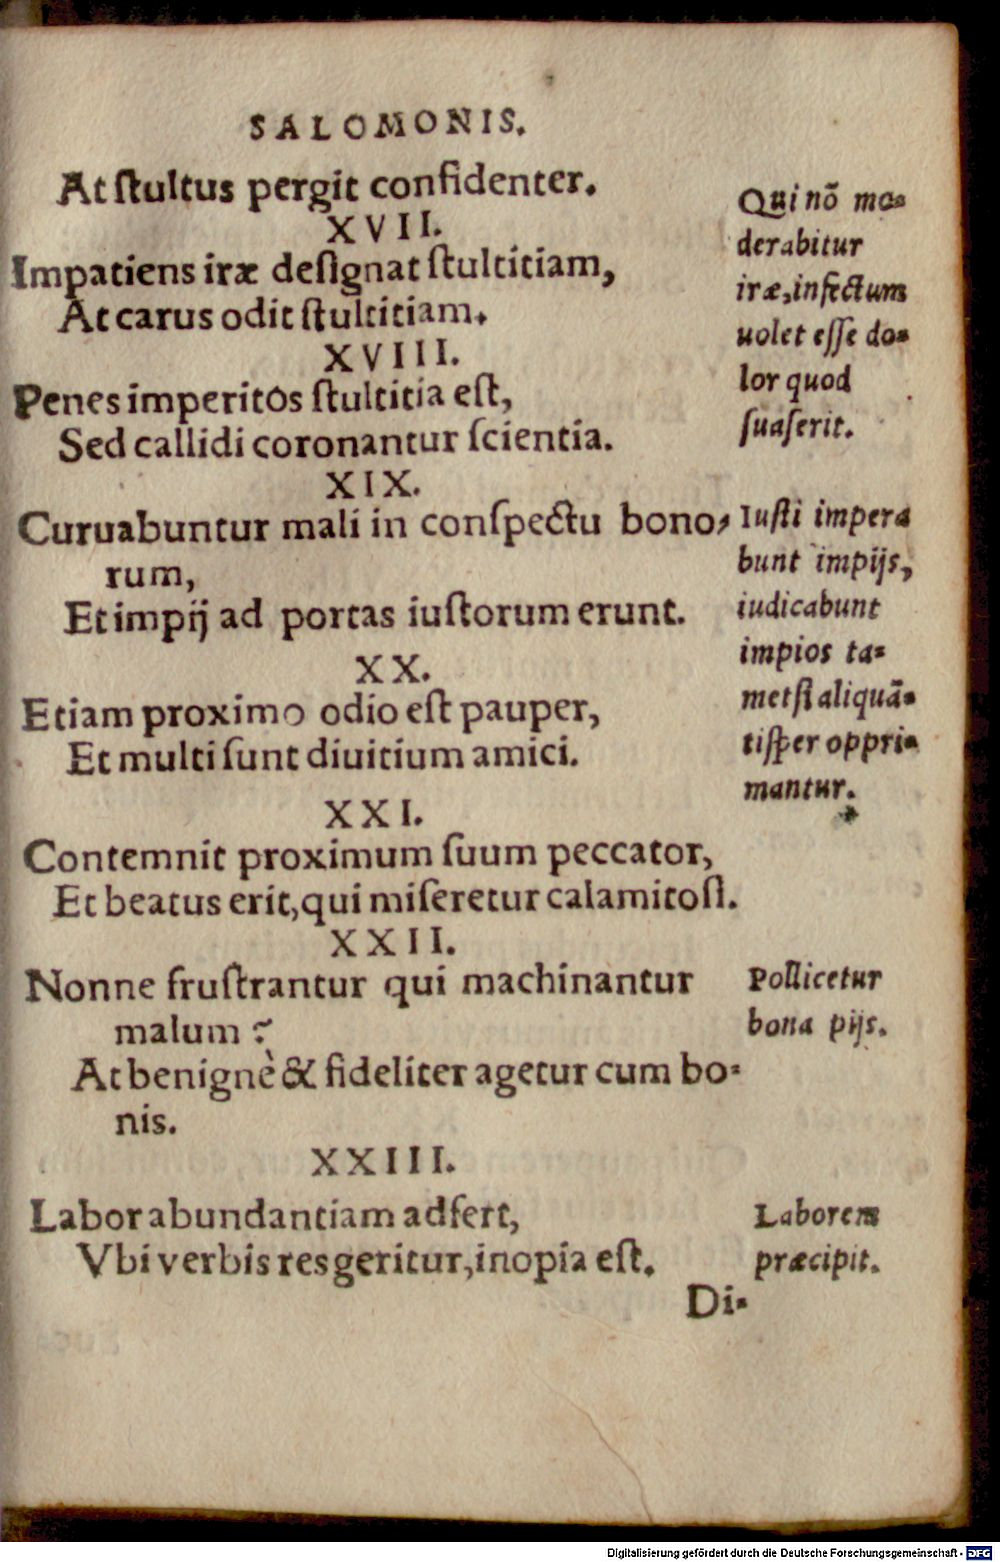 SALOMONIS.
At ſtultus pergit confidenter.
XVII.
Impatiens iræ deſignat ſtultitiam,
At carus odit ſtultitiam.
XVIII.
Penes imperitos ſtultitia eſt,
Sed callidi coronantur ſcientia.
XIX.
Curuabuntur mali in conſpectu bono-
rum,
Et impij ad portas iuſtorum erunt.
XX.
Etiam proximo odio eſt pauper,
Et multi ſunt diuitium amici.
XXI.
Contemnit proximum ſuum peccator,
Et beatus erit, qui miſeretur calamitoſi.
XXII.
Nonne fruſtrantur qui machinantur
malum?
At benignè & fideliter agetur cum bo-
nis.
XXIII.
Labor abundantiam adfert,
Vbi verbis res geritur, inopia eſt.
Di-
Qui nõ mo-
derabitur
iræ, infectum
uolet eſſe do-
lor quod
ſuaſerit.
Iuſti impera
bunt impijs,
iudicabunt
impios ta-
metſi aliquã-
tiſper oppri-
mantur.
Pollicetur
bona pijs.
Laborem
præcipit.
Digitalisierung gefördert durch die Deutsche Forschungsgemeinschaft - DFG